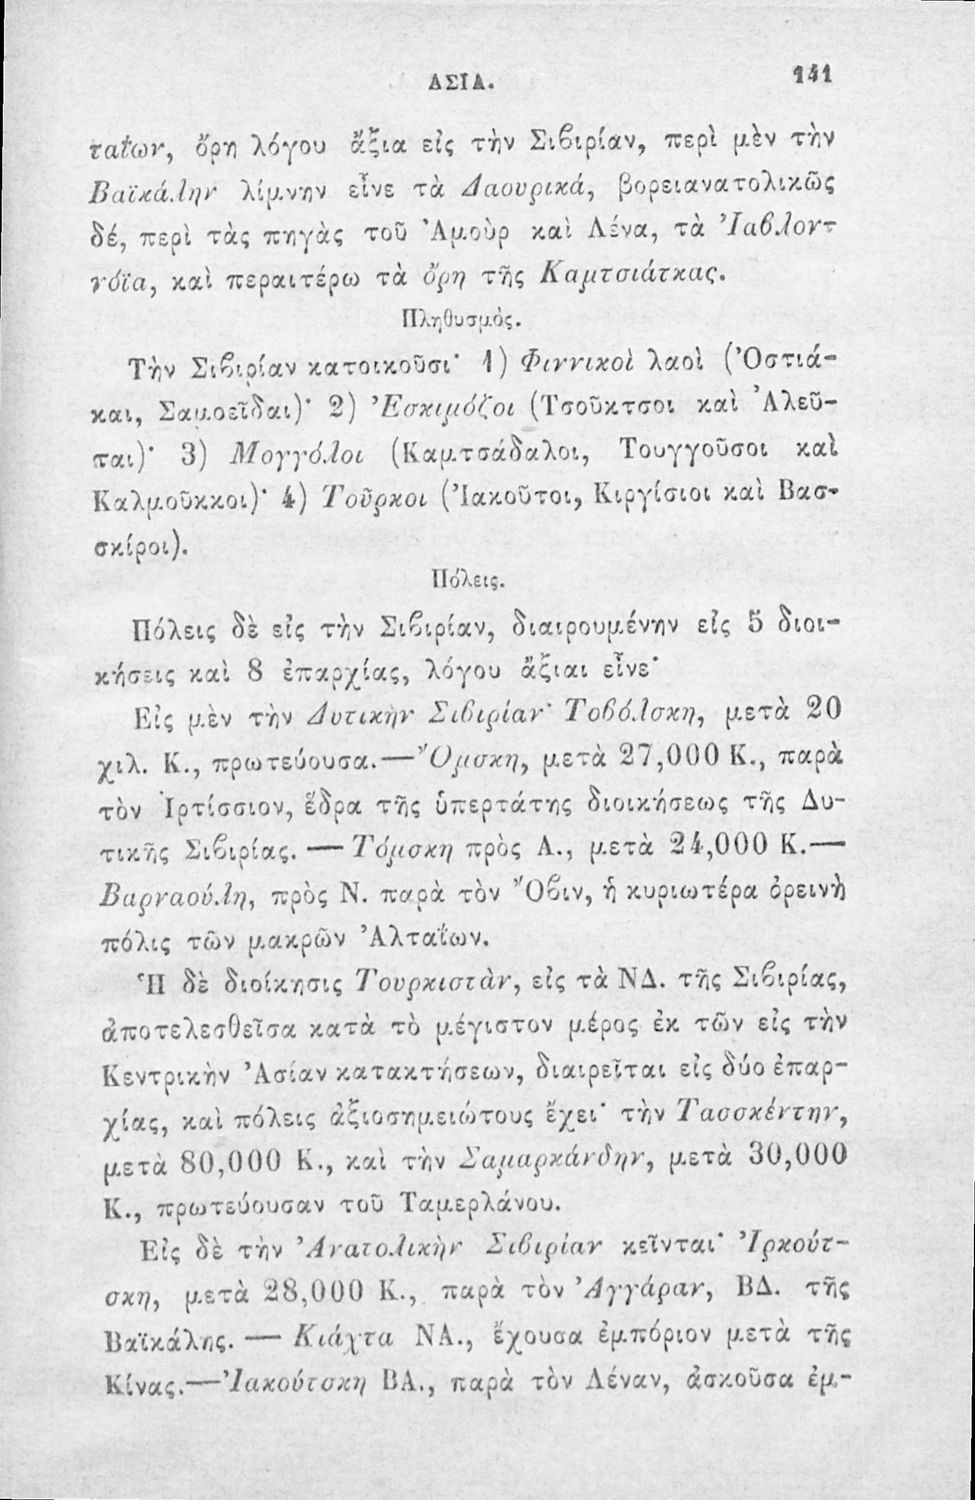 ΑΣΙΑ. 141
ταΐων, ὄρη λόγου ἄξια εἰς τὴν Σιβιρίαν, περὶ μὲν τὴν
Βαϊκάλην λίμνην εἶνε τὰ Δαουρικά, βορειανατολικῶς
δέ, περὶ τὰς πηγὰς τοῦ Ἀμοὺρ καὶ Λένα, τὰ Ἰαβλον-
νόϊα, καὶ περαιτέρω τὰ ὄρη τῆς Καμτσιάτκας.
Πληθυσμὸς.
Τὴν Σιβιρίαν κατοικοῦσι· 1) Φιννικοὶ λαοὶ (Ὀστιά-
και, Σαμοεῖδαι)· 2) Ἐσκιμόζοι (Τσοῦκτσοι καὶ Ἀλεῦ-
ται)· 3) Μογγόλοι (Καμτσάδαλοι, Τουγγοῦσοι καὶ
Καλμοῦκκοι)· 4) Τοῦρκοι (Ἰακοῦτοι, Κιργίσιοι καὶ Βασ-
σκίροι).
Πόλεις.
Πόλεις δὲ εἰς τὴν Σιβιρίαν, διαιρουμένην εἰς 5 διοι-
κήσεις καὶ 8 ἐπαρχίας, λόγου ἄξιαι εἶνε·
Εἰς μὲν τὴν Δυτικὴν Σιβιρίαν· Τοβόλσκη, μετὰ 20
χιλ. Κ., πρωτεύουσα.— Ὄμσκη, μετὰ 27,000 Κ., παρὰ
τὸν Ἰρτίσσιον, ἕδρα τῆς ὑπερτάτης διοικήσεως τῆς Δυ-
τικῆς Σιβιρίας. — Τόμσκη πρὸς Α., μετὰ 24,000 Κ.—
Βαρναούλη, πρὸς Ν. παρὰ τὸν Ὄβιν, ἡ κυριωτέρα ὀρεινὴ
πόλις τῶν μακρῶν Ἀλταΐων.
Ἡ δὲ διοίκησις Τουρκιστὰν, εἰς τὰ ΝΔ. τῆς Σιβιρίας,
ἀποτελεσθεῖσα κατὰ τὸ μέγιστον μέρος ἐκ τῶν εἰς τὴν
Κεντρικὴν Ἀσίαν κατακτήσεων, διαιρεῖται εἰς δύο ἐπαρ-
χίας, καὶ πόλεις ἀξιοσημειώτους ἔχει· τὴν Τασσκέντην,
μετὰ 80,000 Κ., καὶ τὴν Σαμαρκάνδην, μετὰ 30,000
Κ., πρωτεύουσαν τοῦ Ταμερλάνου.
Εἰς δὲ τὴν Ἀνατολικὴν Σιβιρίαν κεῖνται· Ἰρκούτ-
σκη, μετὰ 28,000 Κ., παρὰ τὸν Ἀγγάραν, ΒΔ. τῆς
Βαϊκάλης. — Κιάχτα ΝΑ., ἔχουσα ἐμπόριον μετὰ τῆς
Κίνας.— Ἰακούτσκη ΒΑ., παρὰ τὸν Λέναν, ἀσκοῦσα ἐμ-